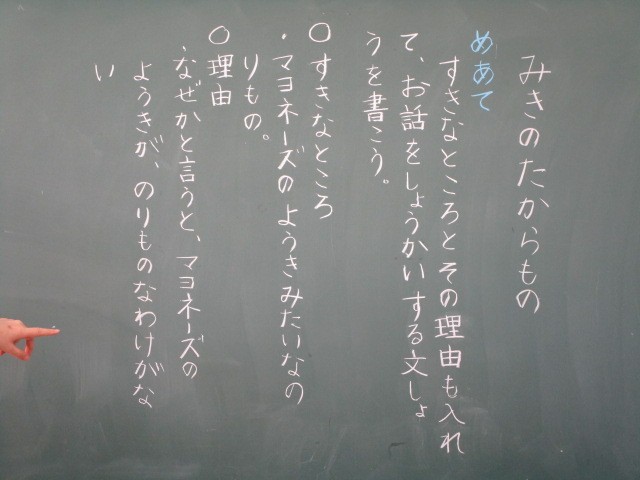 みきのたからもの
めあて
すきなところとその理由も入れ
て、お話をしょうかいする文しょ
うを書こう。
○すきなところ
・マヨネーズのようきみたいなの
りもの。
○理由
・なぜかと言うと、マヨネーズの
ようきが、のりものなわけがな
い